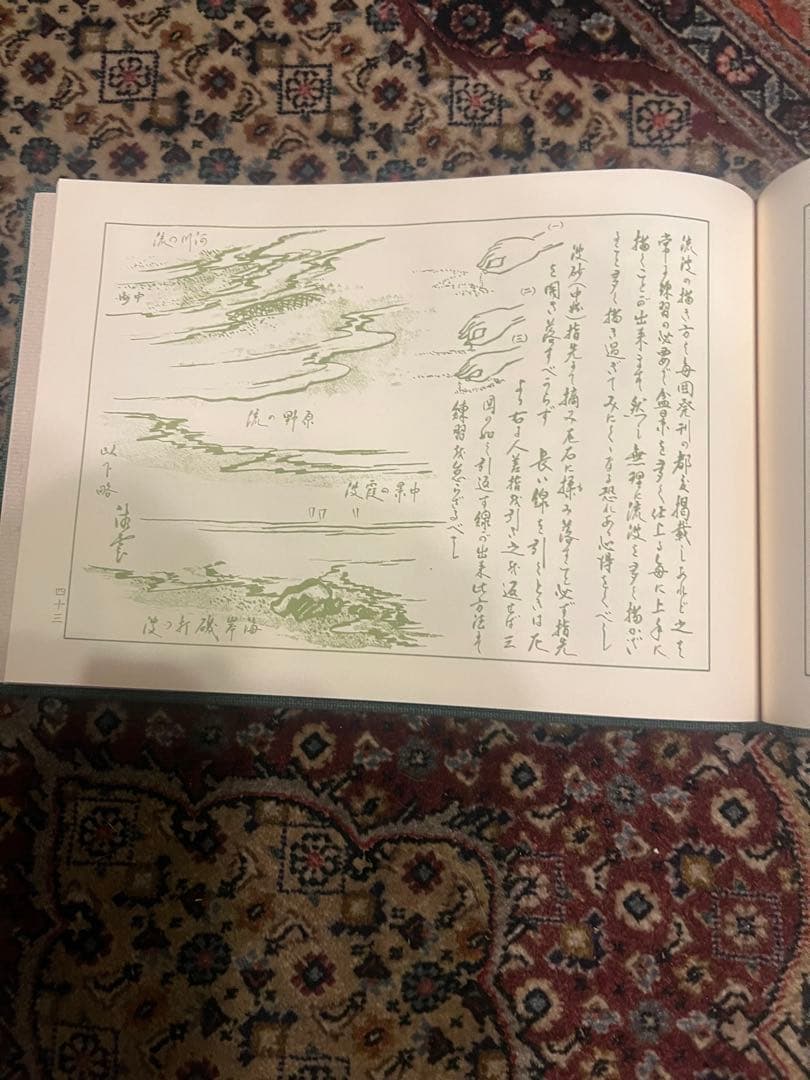 流波の描き方は毎回発刊の都度掲載しあれど之は
常に練習の必要で盆景を多く仕上る毎に上手に
描くことが出来ます 然し無理に流波を多く描かざ
ること多く描き過ぎてみにくくなる恐れあり心得おくべし
波砂(中 指先にて摘み 石に揉み落すこと必ず指先
を開き落すべからず 長い線を引くときは
より右に人差指を引き之を返せば三
図の如く引返す線が出来此方法を
練習を怠らざるべし
(一)
(二)
(三)
河川の流
中
原野の流
中景の霞波
海岸磯打つ波
以下略
四十三